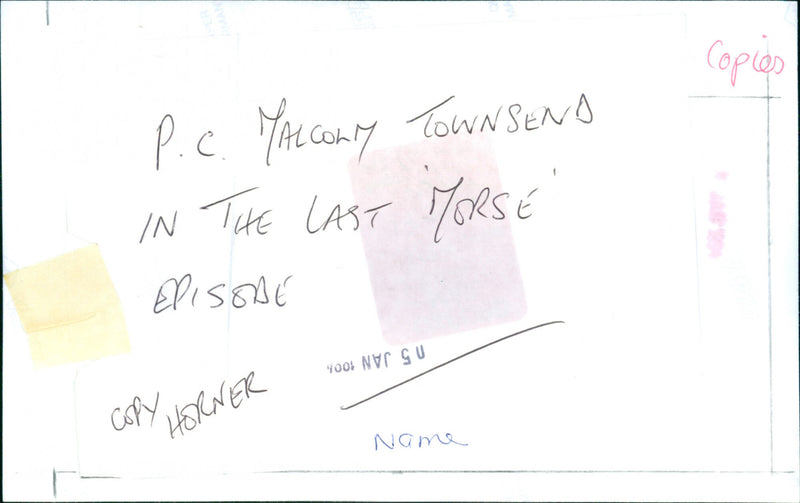 Copies
P.C. MALCOLM TOWNSEND
IN THE LAST 'MORSE'
EPISODE
05 JAN
COPY HORNER
Name